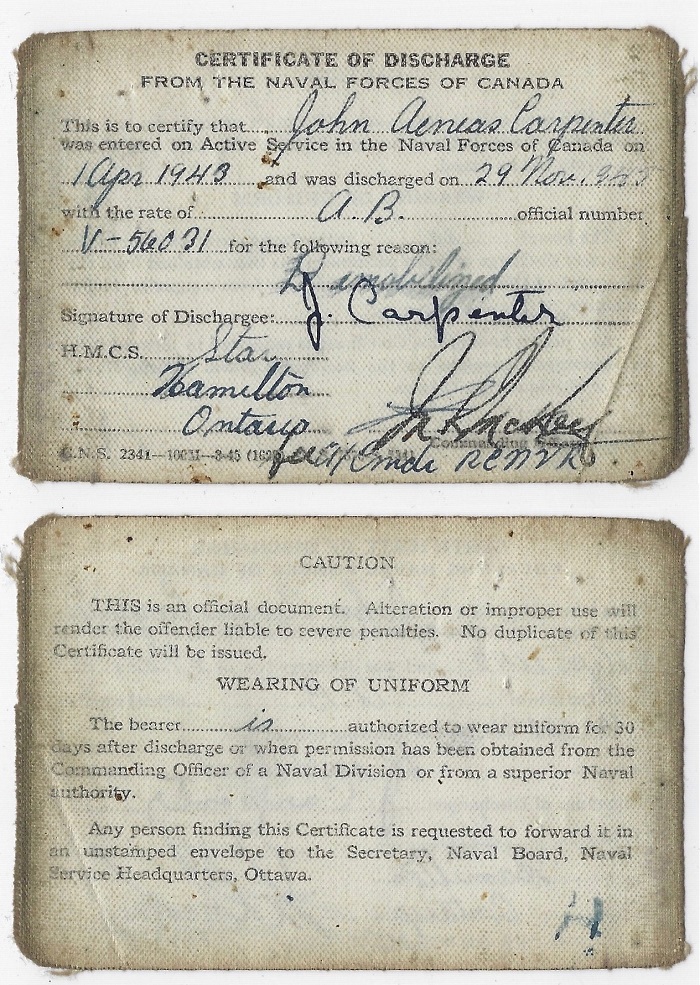 CERTIFICATE OF DISCHARGE
FROM THE NAVAL FORCES OF CANADA
This is to certify that John Aeneas Carpenter
was entered on Active Service in the Naval Forces of Canada on
1 Apr 1943 and was discharged on 29 Nov.
with the rate of A.B. official number
V-56031 for the following reason:
Demobilized
Signature of Dischargee: J. Carpenter
H.M.C.S. Star
Hamilton
Ontario
Commanding
C.N.S. 2341—100M—8-45
RCNVR
CAUTION
THIS is an official document. Alteration or improper use will
render the offender liable to severe penalties. No duplicate of this
Certificate will be issued.
WEARING OF UNIFORM
The bearer is authorized to wear uniform for 30
days after discharge or when permission has been obtained from the
Commanding Officer of a Naval Division or from a superior Naval
authority.
Any person finding this Certificate is requested to forward it in
an unstamped envelope to the Secretary, Naval Board, Naval
Service Headquarters, Ottawa.
H